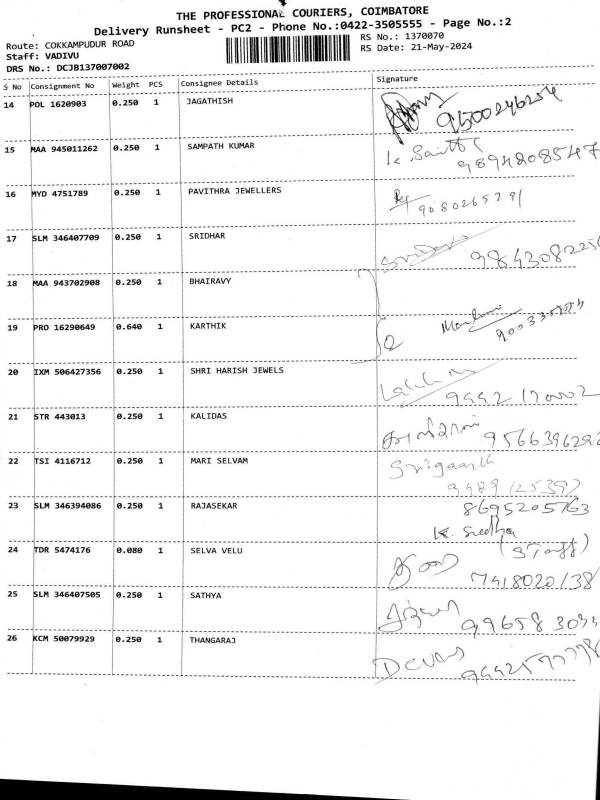 THE PROFESSIONAL COURIERS, COIMBATORE
Delivery Runsheet - PC2 - Phone No.:0422-3505555 - Page No.:2
Route: COKKAMPUDUR ROAD
RS No.: 1370070
Staff: VADIVU
RS Date: 21-May-2024
DRS No.: DCJB137007002
S No Consignment No Weight PCS Consignee Details Signature
14 POL 1620903 0.250 1 JAGATHISH 9500246254
15 MAA 945011262 0.250 1 SAMPATH KUMAR K. 9894208547
16 MYD 4751789 0.250 1 PAVITHRA JEWELLERS
17 SLM 346407709 0.250 1 SRIDHAR
18 MAA 943702908 0.250 1 BHAIRAVY
19 PRO 16290649 0.640 1 KARTHIK
20 IXM 506427356 0.250 1 SHRI HARISH JEWELS
21 STR 443013 0.250 1 KALIDAS 9566396292
22 TSI 4116712 0.250 1 MARI SELVAM
23 SLM 346394086 0.250 1 RAJASEKAR 8695205763
K. Sudha
24 TDR 5474176 0.080 1 SELVA VELU (Staff)
7418020138
25 SLM 346407505 0.250 1 SATHYA
26 KCM 50079929 0.250 1 THANGARAJ